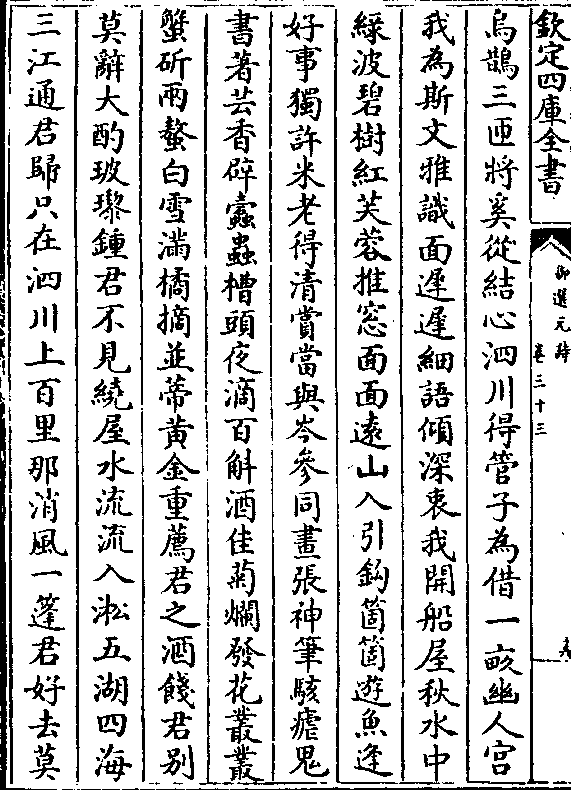 欽定四庫全書
御選元詩
卷三十三
烏鵲三匝將奚從結心泗川得管子為借一畝幽人宮
我為斯文雅識面遲遲細語傾深衷我開船屋秋水中
緑波碧樹紅芙蓉推窓面面遠山入引鈎箇箇遊魚逢
好事獨許米老得清賞當與岑參同畫張神筆駭瘧鬼
書著芸香辟蠧蟲槽頭夜滴百斛酒佳菊爛發花叢叢
蟹斫兩螯白雪滿橘摘並蒂黄金重薦君之酒餞君别
莫辭大酌玻瓈鍾君不見繞屋水流流入淞五湖四海
三江通君歸只在泗川上百里那消風一篷君好去莫